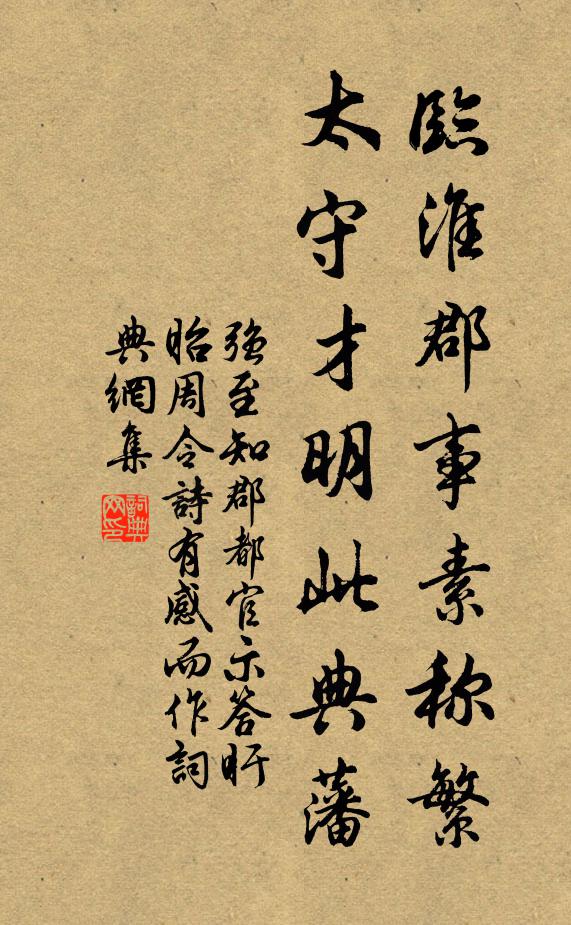 臨淮郡事素称繁
太守才明此典藩
強至知郡都官示答盱
眙周令詩有感而作詞
典網集
詞典
网印